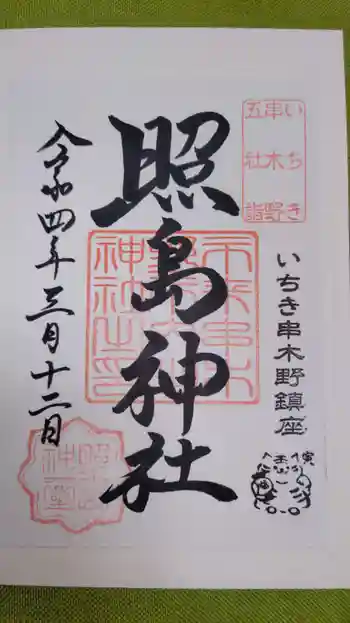 いちき
串木野
五社詣
いちき串木野鎮座
照島神社
令和四年三月十二日